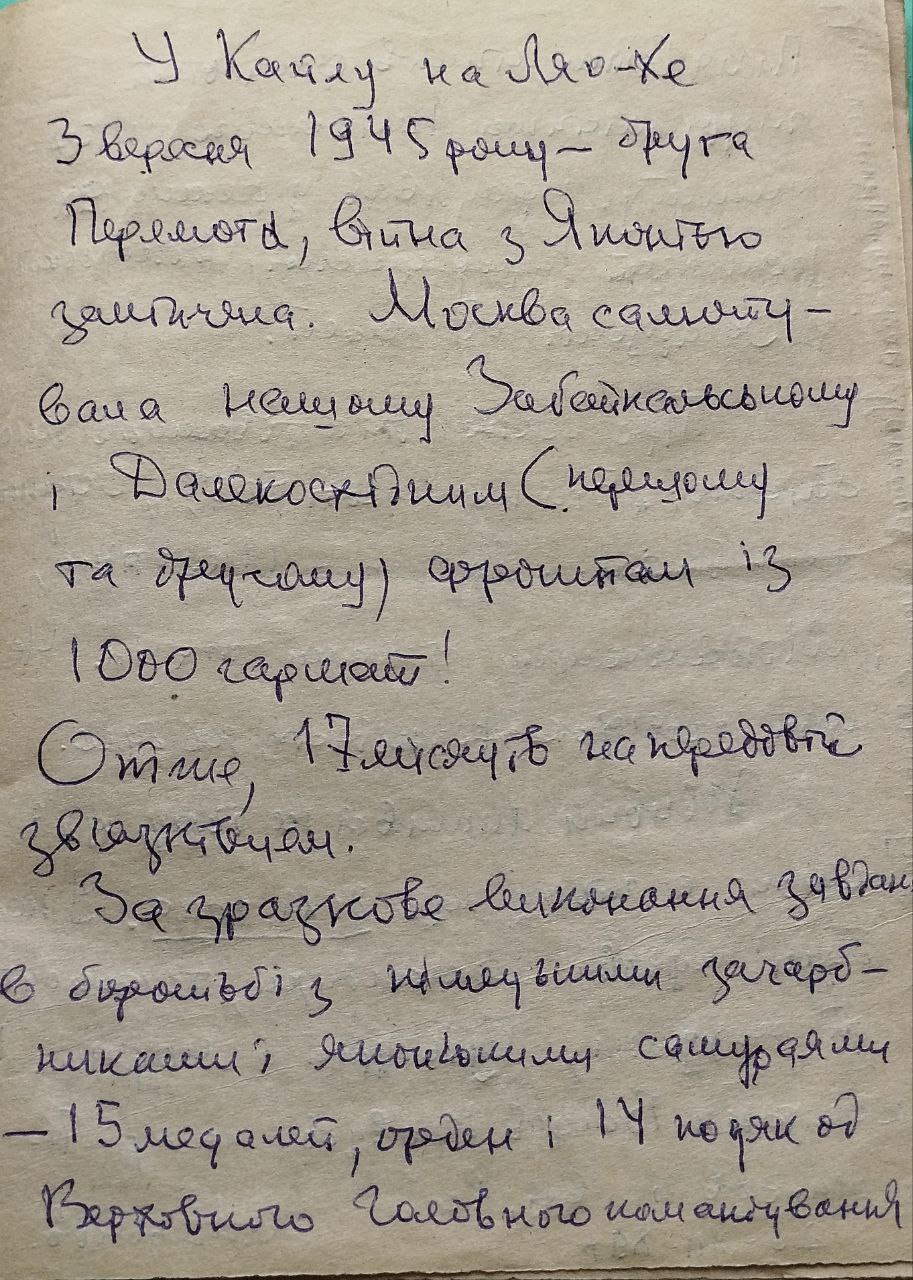 У Кайлу на Ляо-Хе
3 вересня 1945 року – друга
Перемога, війна з Японією
закінчена. Москва салюту-
вала нашому Забайкальському
і Далекосхідним (першому
та другому) фронтам із
1000 гармат!
Отже, 17 місяців на передовій
зв'язківцем.
За зразкове виконання завдан
в боротьбі з німецькими загарб-
никами і японськими самураями
– 15 медалей, орден і 14 подяк од
Верховного Головнокомандування